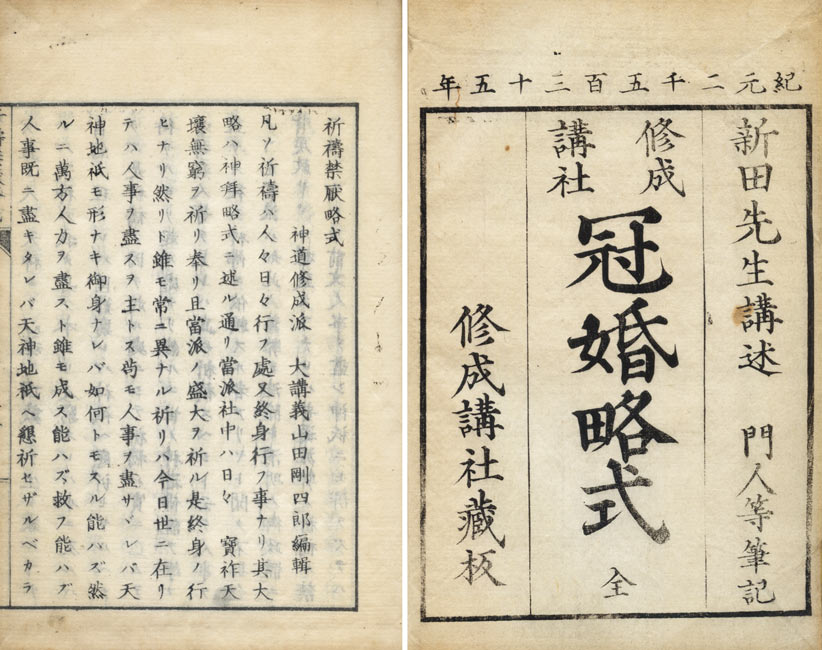 紀元二千五百三十五年
新田先生講述　門人等筆記
修成
講社
冠婚略式　全
修成講社藏板
祈禱禁厭略式
神道修成派　大講義山田剛四郎編輯
凡ソ祈禱ハ人々日々行フ處又終身行フ事ナリ其大
略ハ神拜略式ニ述ル通リ當派社中ハ日々　寶祚天
壤無窮ヲ祈リ奉リ且當派ノ盛大ヲ祈ル是終身ノ行
ヒナリ然リト雖モ常ニ異ナル祈リハ今日世ニ在リ
テハ人事ヲ盡スヲ主トス苟モ人事ヲ盡サヾレバ天
神地祇モ形ナキ御身ナレバ如何トモスル能ハズ然
ルニ萬方人力ヲ盡スト雖モ成ス能ハズ救フ能ハズ
人事既ニ盡キタレバ天神地祇ヘ懇祈セザルベカラ